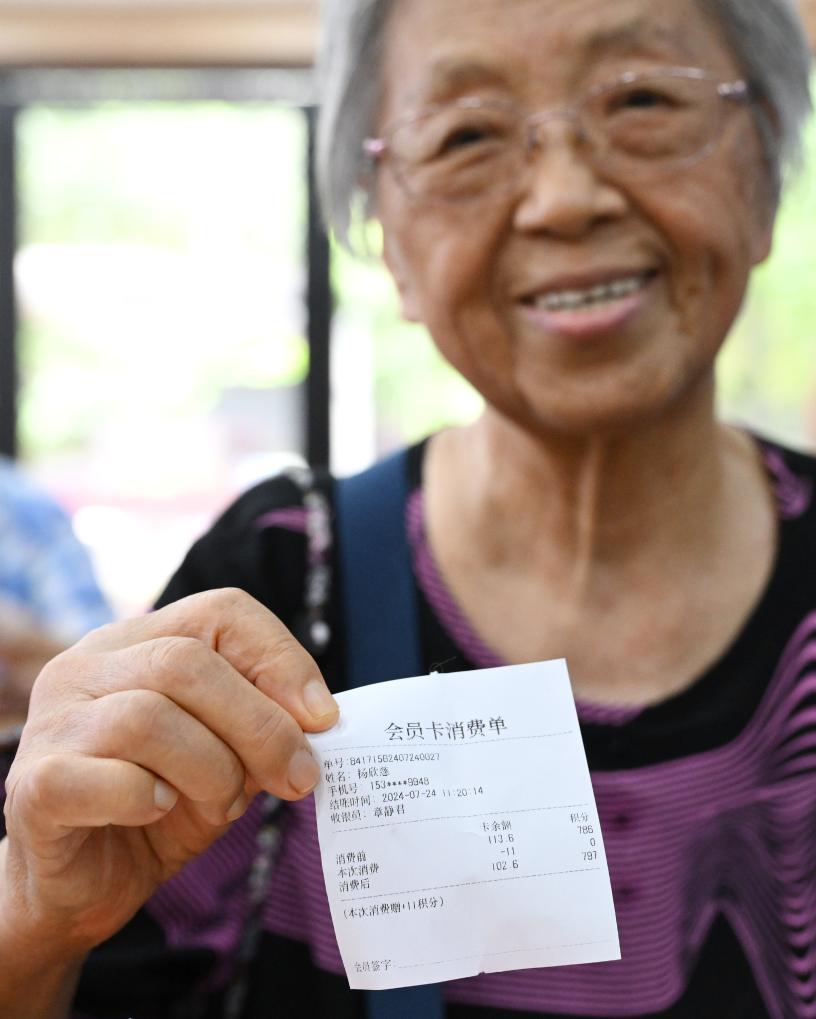 会员卡消费单
单号:84171502407240027
姓名: 杨欣慈
手机号 153****9948
结账时间: 2024-07-24 11:20:14
收银员: 章静君
卡余额 积分
消费前 113.6 786
本次消费 -11 0
消费后 102.6 797
(本次消费赠+11积分)
会员签字: